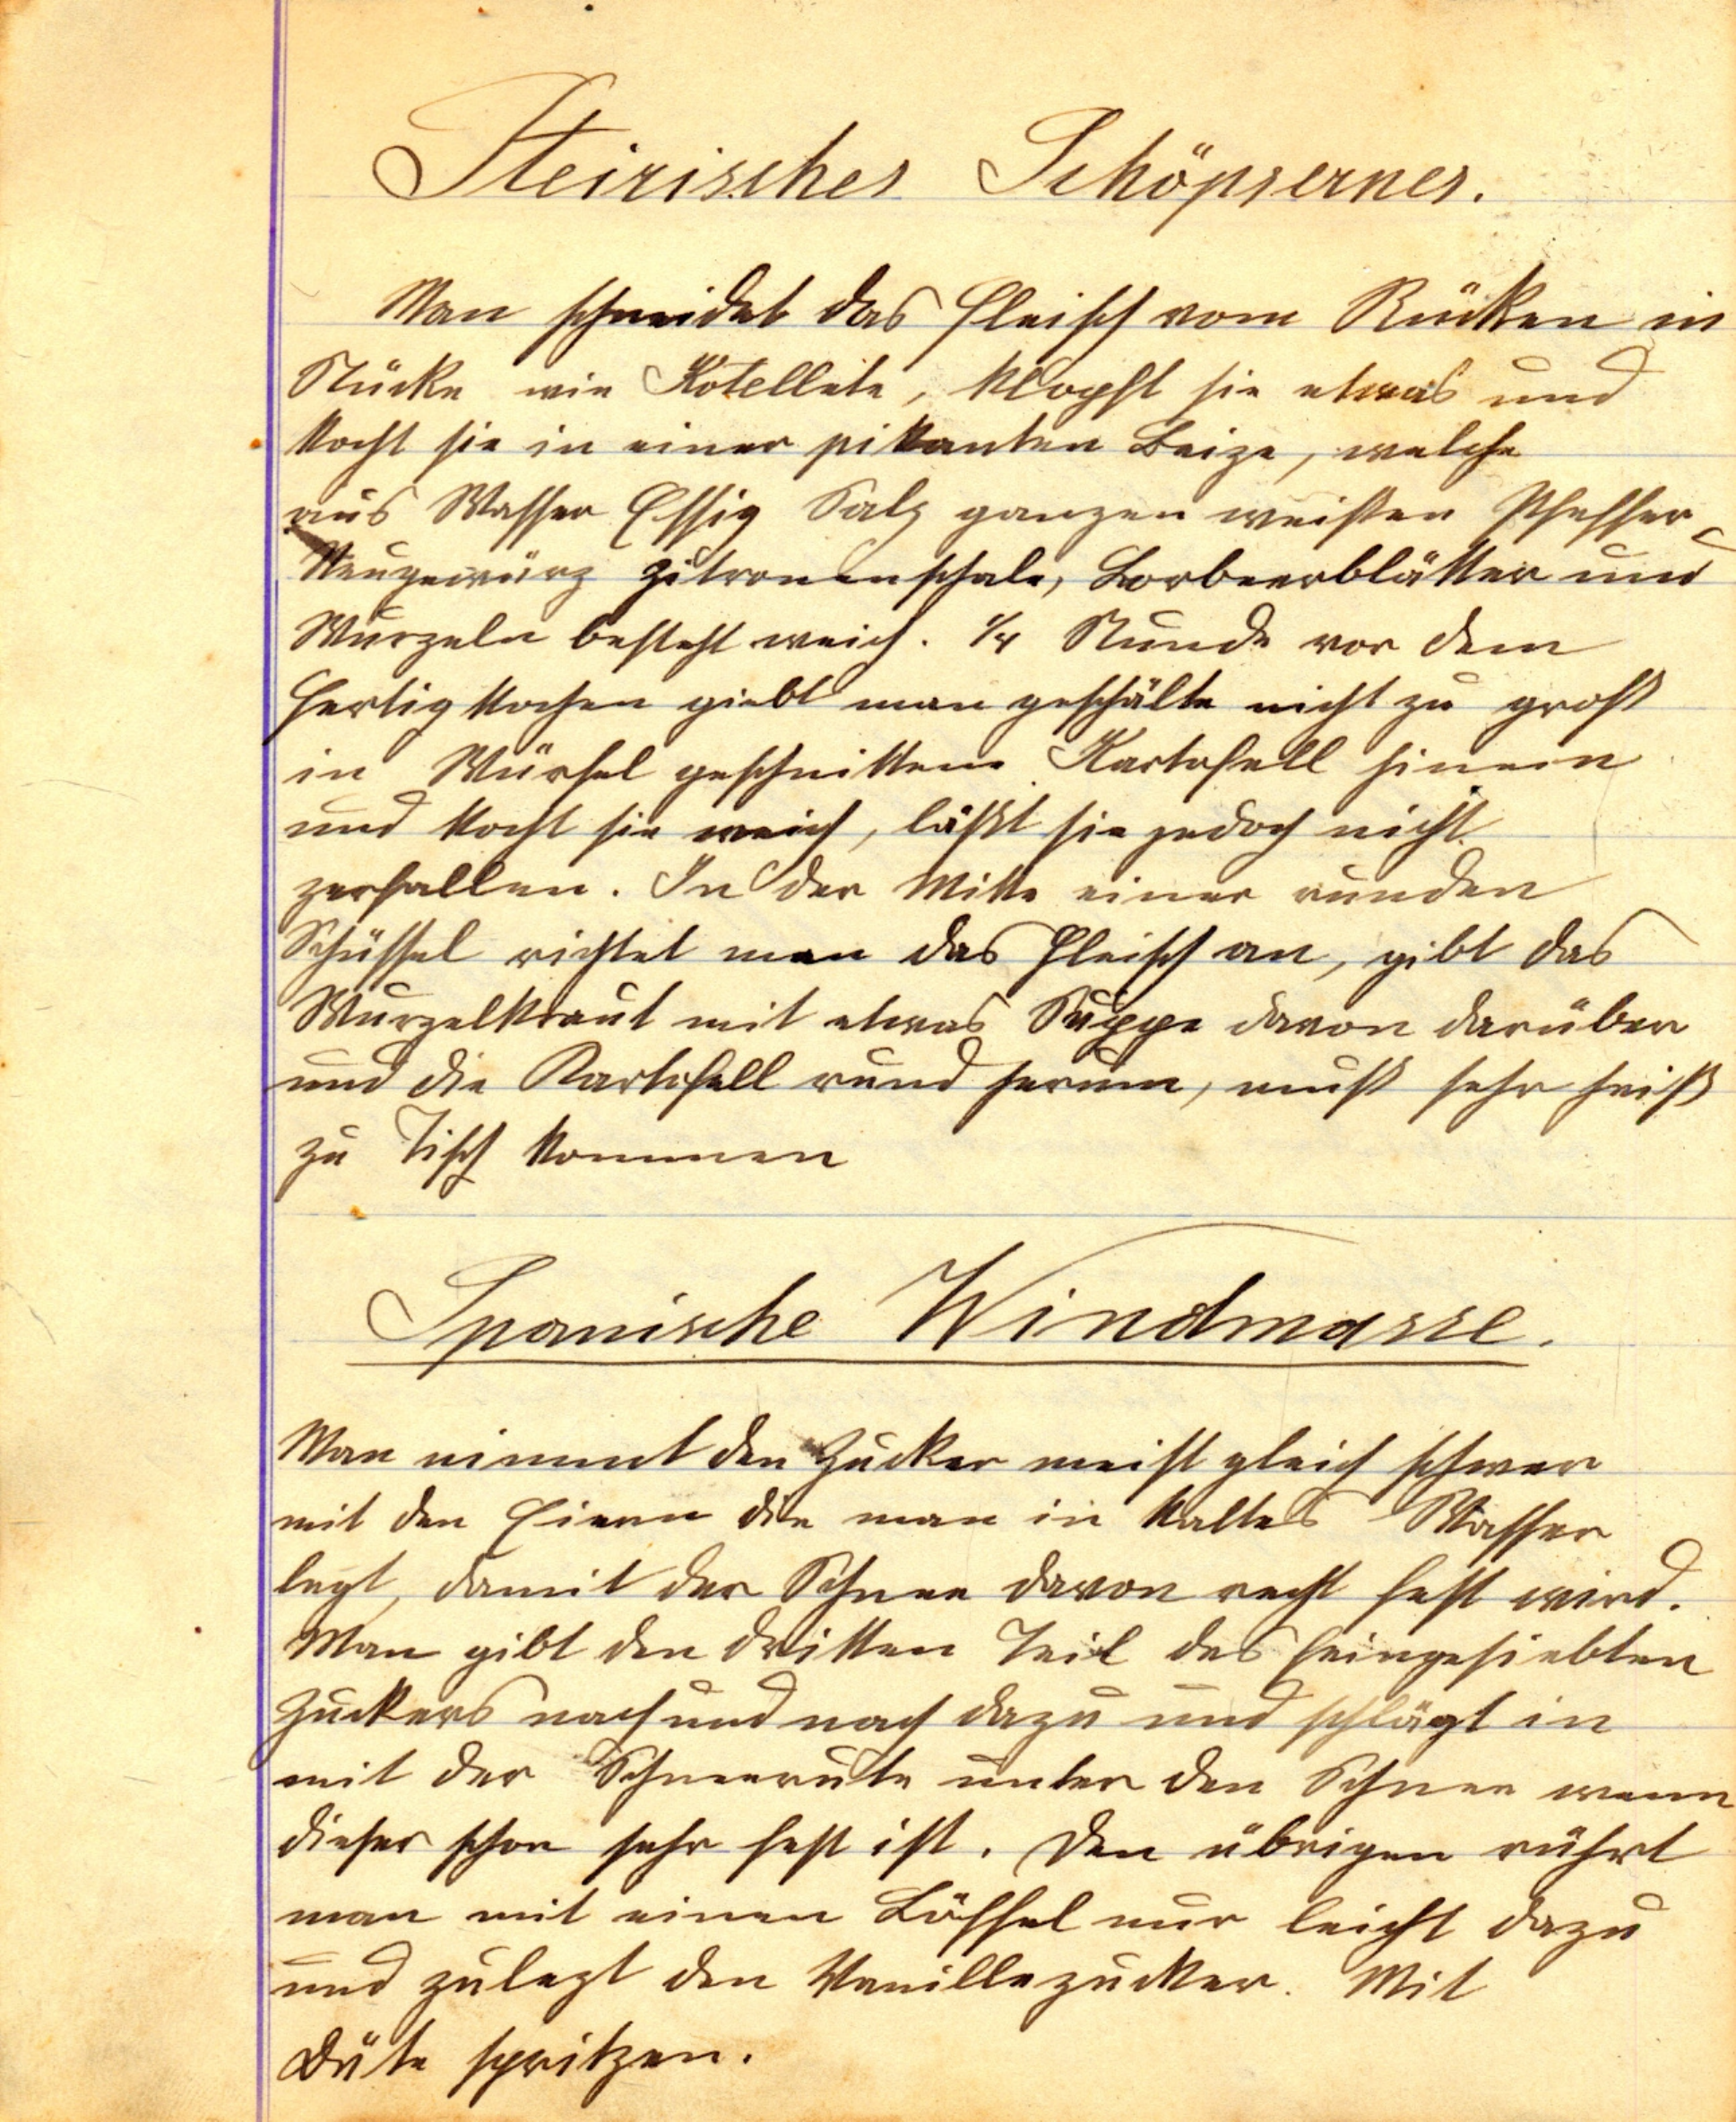 Steirisches Schöpsernes.
Man schneidet das Fleisch vom Rücken in
Stücke wie Kotellete, klopft sie etwas und
kocht sie in einer pikanten Beize, welche
aus Wasser Essig Salz ganzen weißen Pfeffer
Neugewürz Zitronenschale, Lorbeerblätter und
Wurzeln besteht weich. 1/4 Stunde vor dem
fertig kochen giebt man geschälte nicht zu groß
in Würfel geschnittene Kartofell hinein
und kocht sie weich, läßt sie jedoch nicht
zerfallen. In der Mitte einer runden
Schüssel richtet man das Fleisch an, gibt das
Wurzelkraut mit etwas Suppe davon darüber
und die Kartofell rund herum, muß sehr heiß
zu Tisch kommen
Spanische Windmasse.
Man nimmt den Zucker meist gleich schwer
mit den Eiern die man in kaltes Wasser
legt, damit der Schnee davon recht fest wird.
Man gibt den dritten Teil des feingesiebten
Zuckers nach und nach dazu und schlägt in
mit der Schneerute unter den Schnee wenn
dieser schon sehr fest ist. Den übrigen rührt
man mit einen Löffel nur leicht dazu
und zulezt den Vanillezucker. Mit
Düte spritzen.